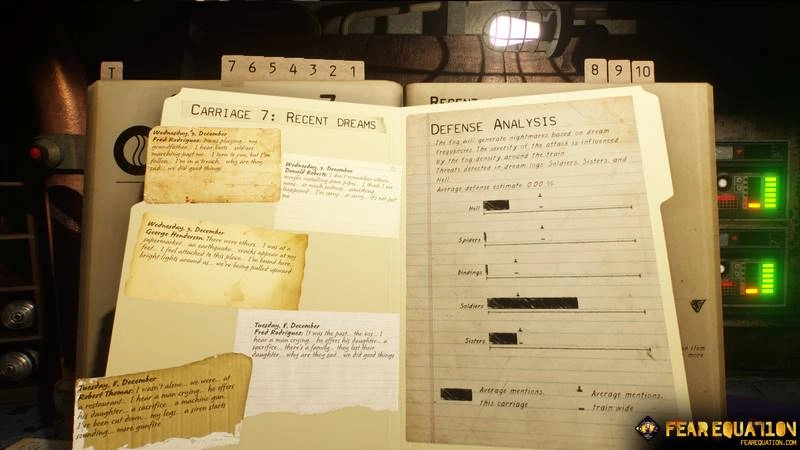 T
7 6 5 4 3 2 1
8 9 10
7
Carriage 7: Recent dreams
Wednesday, 9. December
Fred Rodriguez: I was playing... my
grandfather... I hear boots... soldiers
marching past me... I turn to run, but I've
fallen... I'm in a trench... why are they
sad... we did good things
Wednesday, 9. December
Donald Roberts: I don't remember where...
maybe installing some pipes... I think I was
something
happened... I'm sorry... so sorry... it's not just
me
Wednesday, 9. December
George Henderson: There were others... I was at a
supermarket... an earthquake... cracks appear at my
feet... I feel attached to this place... I'm bound here
bright lights around us... we're being pulled upward
Tuesday, 8. December
Fred Rodriguez: It was the past... the 60s... I
hear a man crying... he offers his daughter... a
sacrifice... there's a family... they lost their
daughter... why are they sad... we did good things
Tuesday, 8. December
Robert Thomas: I wasn't alone... we were... at
a restaurant... I hear a man crying... he offers
his daughter... a sacrifice... a machine gun...
I've been cut down... my legs... a siren starts
sounding... more gunfire
Recent
Defense Analysis
The fog will generate nightmares based on dream
frequencies. The severity of the attack is influenced
by the fog density around the train.
Threats detected in dream logs: Soldiers, Sisters, and
Hell.
Average defense estimate 0.00 %
Hell
Spiders
Bindings
Soldiers
Sisters
Average mentions,
this carriage
Average mentions,
train wide
item
more
FEAR EQUATION
FEAREQUATION.COM